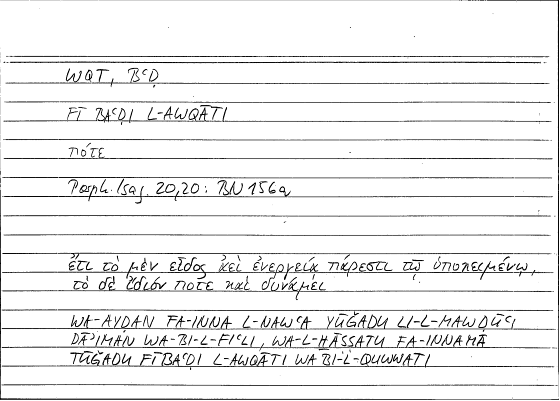 WQT, BʿḌ
FĪ BAʿḌI L-AWQĀTI
πότε
Porph. Isag. 20,20: BN 156a
ἔτι τὸ μὲν εἶδος ἀεὶ ἐνεργείᾳ πάρεστι τῷ ὑποκειμένῳ,
τὸ δὲ ἴδιόν ποτε καὶ δυνάμει
WA-AYḌAN FA-INNA L-NAWʿA YŪǦADU LI-L-MAWḌŪʿI
DĀʾIMAN WA-BI-L-FIʿLI, WA-L-ḪĀṢṢATU FA-INNAMĀ
TŪǦADU FĪ BAʿḌI L-AWQĀTI WA BI-L-QUWWATI